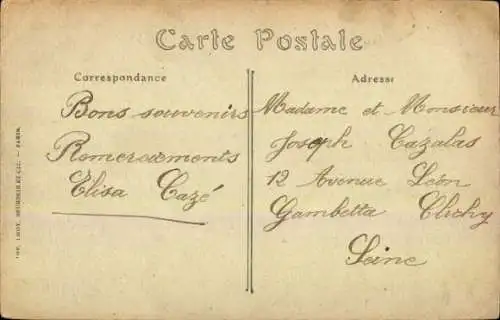 Carte Postale
Correspondance
Bons souvenirs
Remerciements
Elisa Cazé
Adresse
Madame et Monsieur
Joseph Cazalas
12 Avenue Léon
Gambetta Clichy
Seine
PARIS.